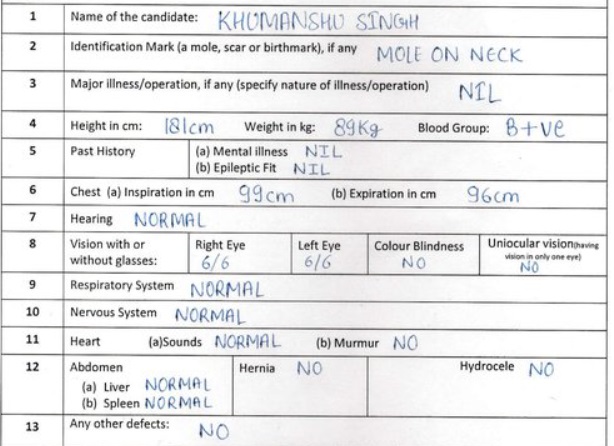 1 Name of the candidate: KHUMANSHU SINGH
2 Identification Mark (a mole, scar or birthmark), if any MOLE ON NECK
3 Major illness/operation, if any (specify nature of illness/operation) NIL
4 Height in cm: 181cm Weight in kg: 89Kg Blood Group: B+ve
5 Past History (a) Mental illness NIL
(b) Epileptic Fit NIL
6 Chest (a) Inspiration in cm 99cm (b) Expiration in cm 96cm
7 Hearing NORMAL
8 Vision with or without glasses: Right Eye 6/6 Left Eye 6/6 Colour Blindness NO Uniocular vision(having vision in only one eye) NO
9 Respiratory System NORMAL
10 Nervous System NORMAL
11 Heart (a)Sounds NORMAL (b) Murmur NO
12 Abdomen Hernia NO Hydrocele NO
(a) Liver NORMAL
(b) Spleen NORMAL
13 Any other defects: NO